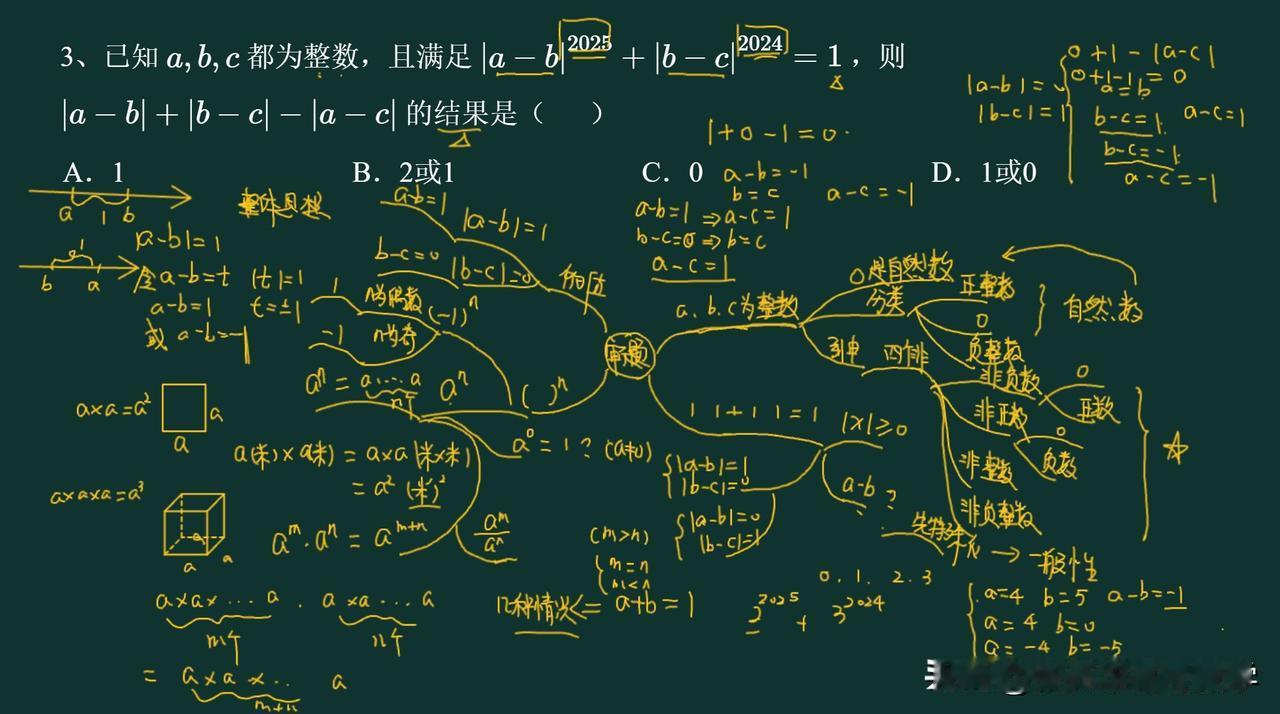 3、已知 a,b,c 都为整数，且满足 |a−b|^2025 + |b−c|^2024 = 1，则
|a−b|+|b−c|−|a−c| 的结果是（　　）
A．1　B．2或1　C．0　D．1或0
0+1-|a-c|
0+1-1=0
|a-b|=0
a=b
|b-c|=1
b-c=1
a-c=1
b-c=-1
a-c=-1
1+0-1=0
a-b=-1
b=c
a-c=-1
a-b=1 ⇒ a-c=1
b-c=0 ⇒ b=c
a-c=1
a 1 b
整体思想
|a-b|=1
b 1 a
令a-b=t |t|=1
a-b=1 t=±1
或 a-b=-1
a-b=1
|a-b|=1
b-c=0
|b-c|=0
1
n为偶数
(-1)^n
-1
n为奇
a^n = a...a
n个
a^n
( )^n
a^0=1? (a≠0)
审题
a.b.c为整数
0是自然数
分类
正整数
0
负整数
自然数
四非
非负数
0
正数
非正数
0
负数
非整数
非负整数
| |+| |=1
|x|≥0
a-b?
|a-b|=1
|b-c|=0
|a-b|=0
|b-c|=1
先特殊
→ 一般性
a×a=a²
a
a
a(米)×a(米)=a×a(米×米)
=a²(米)²
a×a×a=a³
a
a
a
a^m·a^n=a^(m+n)
a^m/a^n
(m>n)
m=n
m<n
a×a×...a · a×a...a
m个 n个
= a×a×... a
m+n
几种情况 a+b=1
0.1.2.3
3^2025 + 3^2024
a=4 b=5 a-b=-1
a=4 b=0
a=-4 b=-5